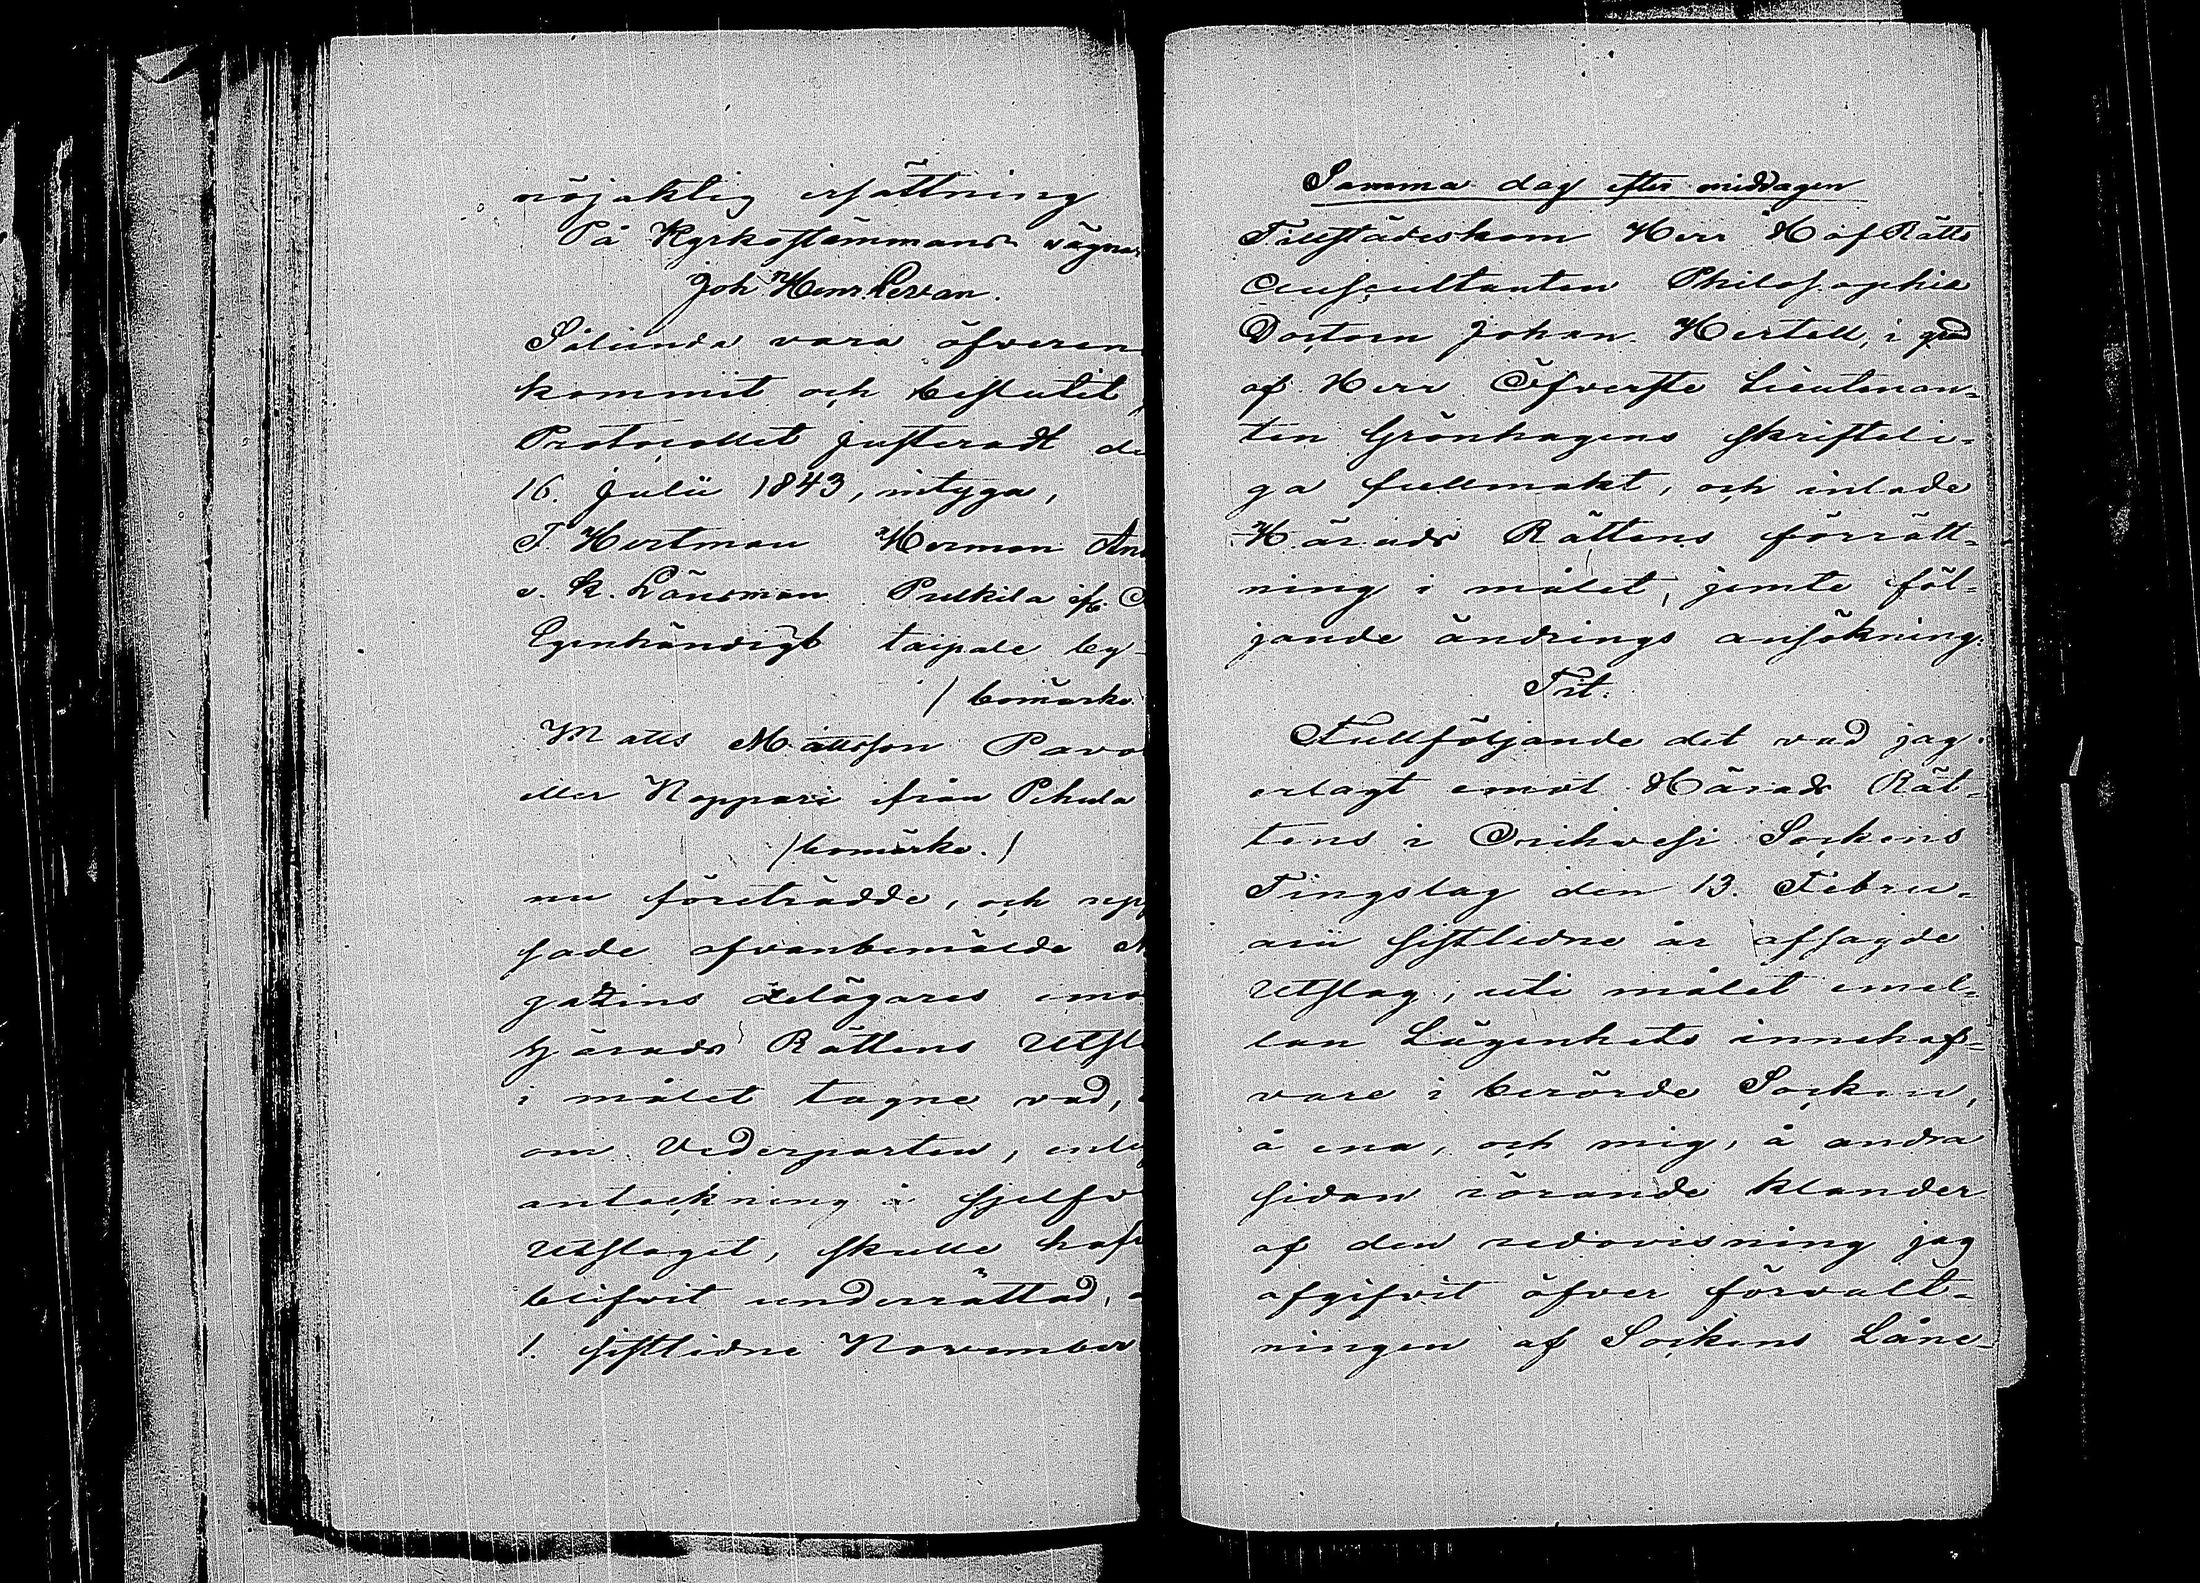 nöjaktig ersättning
På Kyrkostämmans vägnar
Joh Henr. Pervan.
Sålunda vara öfveren
kommit och beslutit,
Protocollet justeradt de
16. Julii 1843, intyga,
J. Hertman Herman And
v. K. Länsman Pulkila if.
Egenhändigt taipale by
/bomärke
Matts Mattsson Pavo
eller Noppari ifrån Pehula
/bomärke./
nu företrädde, och upp
sade ofvanbemälde M
gazins delägares emo
Härads Rättens Utsla
i målet tagne vad,
om Vederparten, enlig
anteckning i sjelfv
Utslaget, skulle hafv
blifvit underrättad,
1. sistlidne November
Samma dag efter middagen
Tillstädeskom Herr HofRätts
Auscultanten Philosophiæ
Doctorn Johan Hertell, i grad
af Herr Öfverste Lieutenan-
ten Grönhagens skriftel-
ga fullmakt, och inlade
Härads Rättens förrätt-
ning i målet, jemte föl-
jande ändrings ansökning:
Tit.
Fullföljande det vad jag
erlagt emot Härads Rät-
tens i Orihvesi Sockens
Tingslag den 13. Febru-
arii sistlidne år afsagde
Utslag, uti målet emel-
lan Lägenhets innehaf-
vare i berörde Socken,
å ena, och mig, å andra
sidan rörande klander
af den redovisning jag
afgifvit öfver förvalt-
ningen af Sockens Låne-